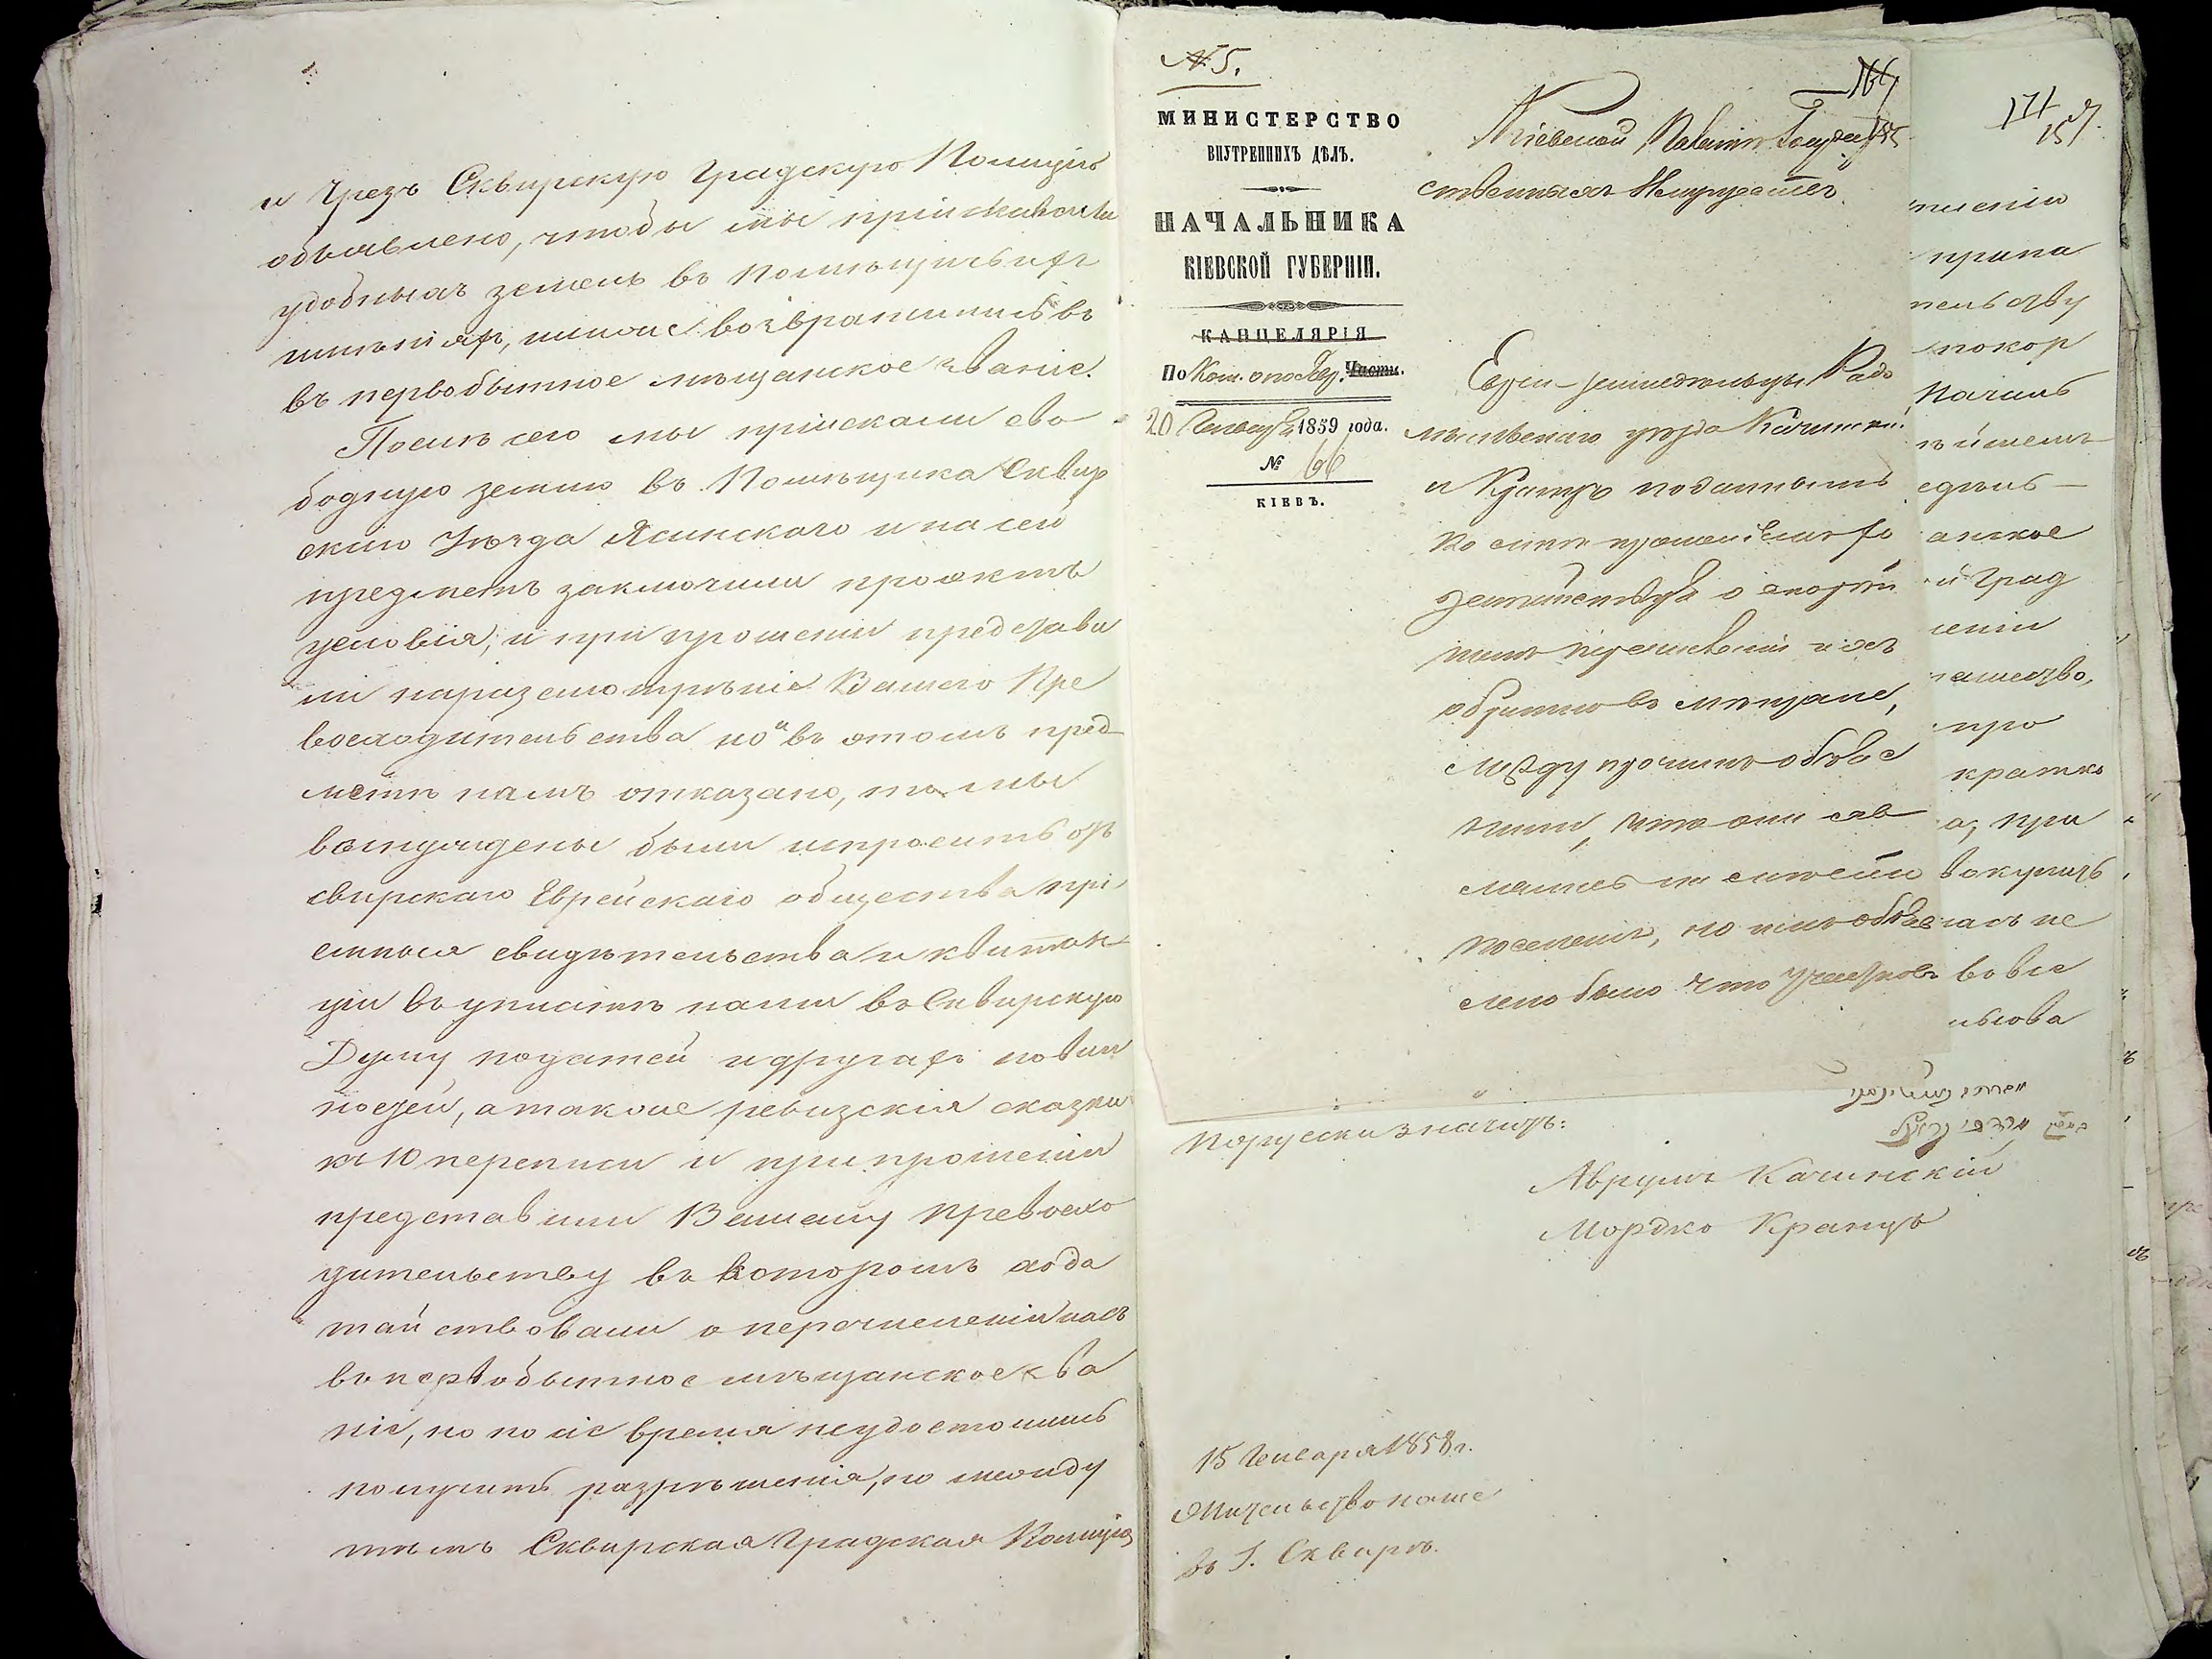 и чрезъ Сквирскую Градскую Полицію
объявлено, чтобы мы пріискивали
удобныхъ земель въ помѣщичьихъ
имѣніяхъ, или же возвратились въ
въ первобытное мѣщанское званіе.
Послѣ сего мы пріискали сво-
бодную землю въ Помѣщика Сквир
скаго Уѣзда Ясинскаго и на сей
предметъ заключили проэктъ
условія, и при прошеніи представи
ли на разсмотрѣніе Вашего Пре
восходительства но и въ этомъ пред-
метѣ намъ отказано, то мы
вынуждены были испросить отъ
сквирскаго Еврейскаго общества прі
емныя свидѣтельства и квитан-
ціи въ уплатѣ нами въ Сквирскую
Думу податей и другихъ повин
ностей, а также ревизскія сказки
къ 10 переписи и при прошеніи
представили Вашему Превосхо
дительству въ которомъ хода
тайствовали о перечисленіи насъ
въ первобытное мѣщанское зва
ніе, но по сіе время неудостоились
получить разрѣшенія, но между
тѣмъ Сквирская Градская Полиція
№ 5.
МИНИСТЕРСТВО
ВНУТРЕННИХЪ ДѢЛЪ.
НАЧАЛЬНИКА
КІЕВСКОЙ ГУБЕРНІИ.
КАНЦЕЛЯРІЯ
По Ком. о пос. Евр. Части.
20 Генваря 1859 года.
№ 66
КІЕВЪ.
Кіевской Палатѣ Государ
ственныхъ Имуществъ.
Евреи-земледѣльцы Радо
мысльскаго уѣзда Качинскій
и Кранцъ поданнымъ
ко мнѣ прошеніемъ хо
датайствуя о скорѣй
шемъ перечисленіи ихъ
обратно въ мѣщане,
между прочимъ объяс
нили, что они
поселенія, но имъ объяв
лено было что участковъ
171
157
прина
покор
Началь
анское
й Град
шеніи
нашество,
про
кратко
а, при
вокупить
ась не
вовсе
Порусски значитъ:
Аврумъ Качинскій
Мордко Кранцъ
15 Генваря 1858 г.
Жительство наше
въ Г. Сквирѣ.